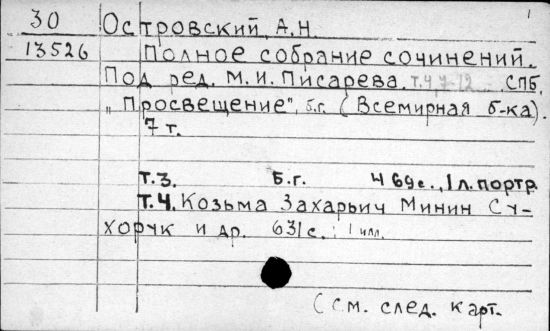 30 Островский, А.Н. 1
13526 Полное собрание сочинений.
Под ред. М.И. Писарева. т.4,7-12 СПБ,
„Просвещение", б.г. (Всемирная б-ка).
7 т.
т.3. Б.г. 469с., 1 л. портр.
т.4. Козьма Захарьич Минин Су-
хорук и др. 631с.; 1 илл.
(см. след. карт.